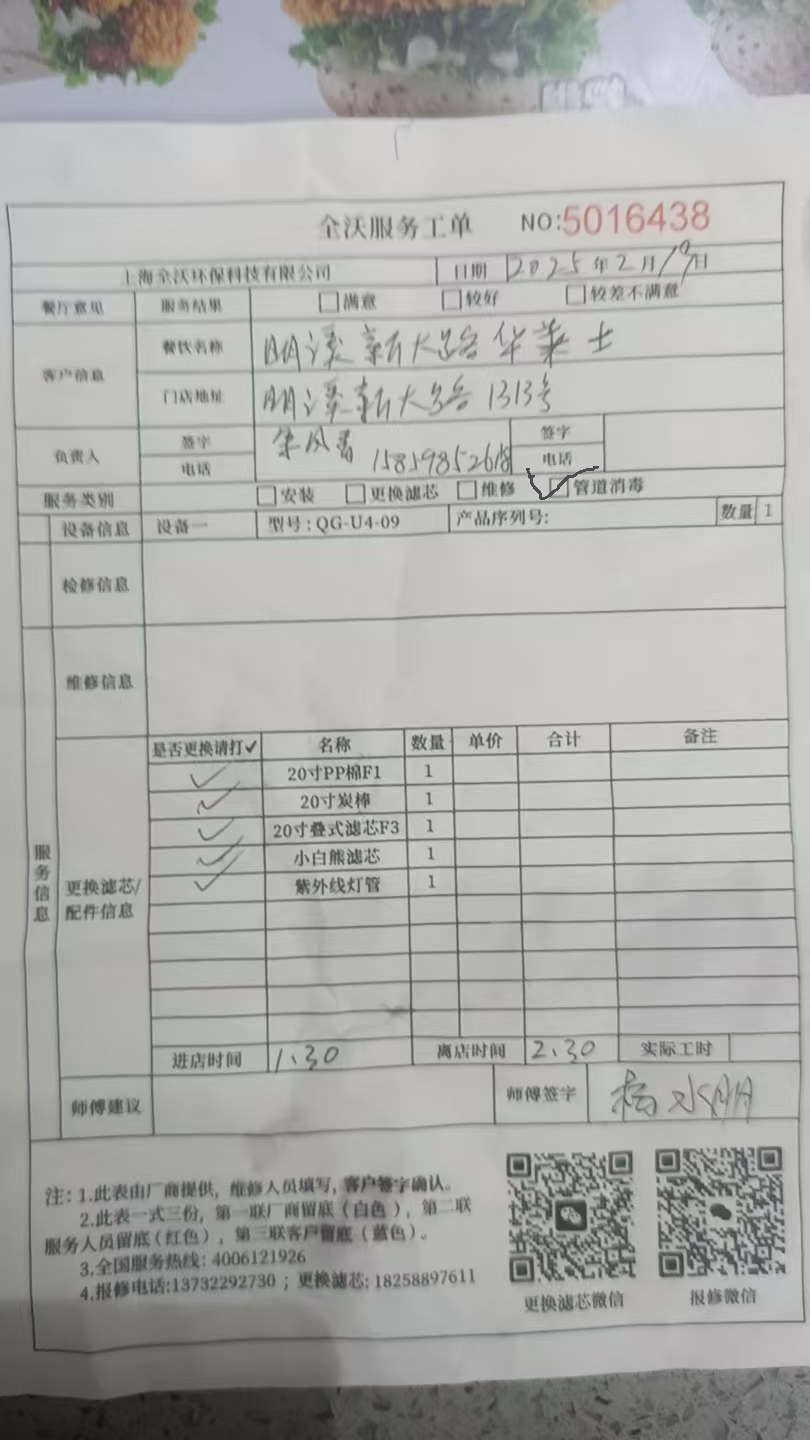 全沃服务工单 NO:5016438
上海全沃环保科技有限公司 日期 2025年2月19日
餐厅意见 服务结果 □满意 □较好 □较差不满意
客户信息 餐饮名称 明溪新大路华莱士
门店地址 明溪新大路1313号
负责人 签字 签字
电话 15859852618 电话
服务类别 □安装 □更换滤芯 □维修 ☑管道消毒
设备信息 设备一 型号:QG-U4-09 产品序列号: 数量 1
检修信息
维修信息
服务信息
更换滤芯/配件信息
是否更换请打✓ 名称 数量 单价 合计 备注
✓ 20寸PP棉F1 1
✓ 20寸炭棒 1
✓ 20寸叠式滤芯F3 1
✓ 小白熊滤芯 1
✓ 紫外线灯管 1
进店时间 1.30 离店时间 2.30 实际工时
师傅建议 师傅签字 杨水明
注: 1.此表由厂商提供, 维修人员填写, 客户签字确认。
2.此表一式三份, 第一联厂商留底(白色), 第二联
服务人员留底(红色), 第三联客户留底(蓝色)。
3.全国服务热线: 4006121926
4.报修电话:13732292730 ; 更换滤芯: 18258897611
更换滤芯微信 报修微信